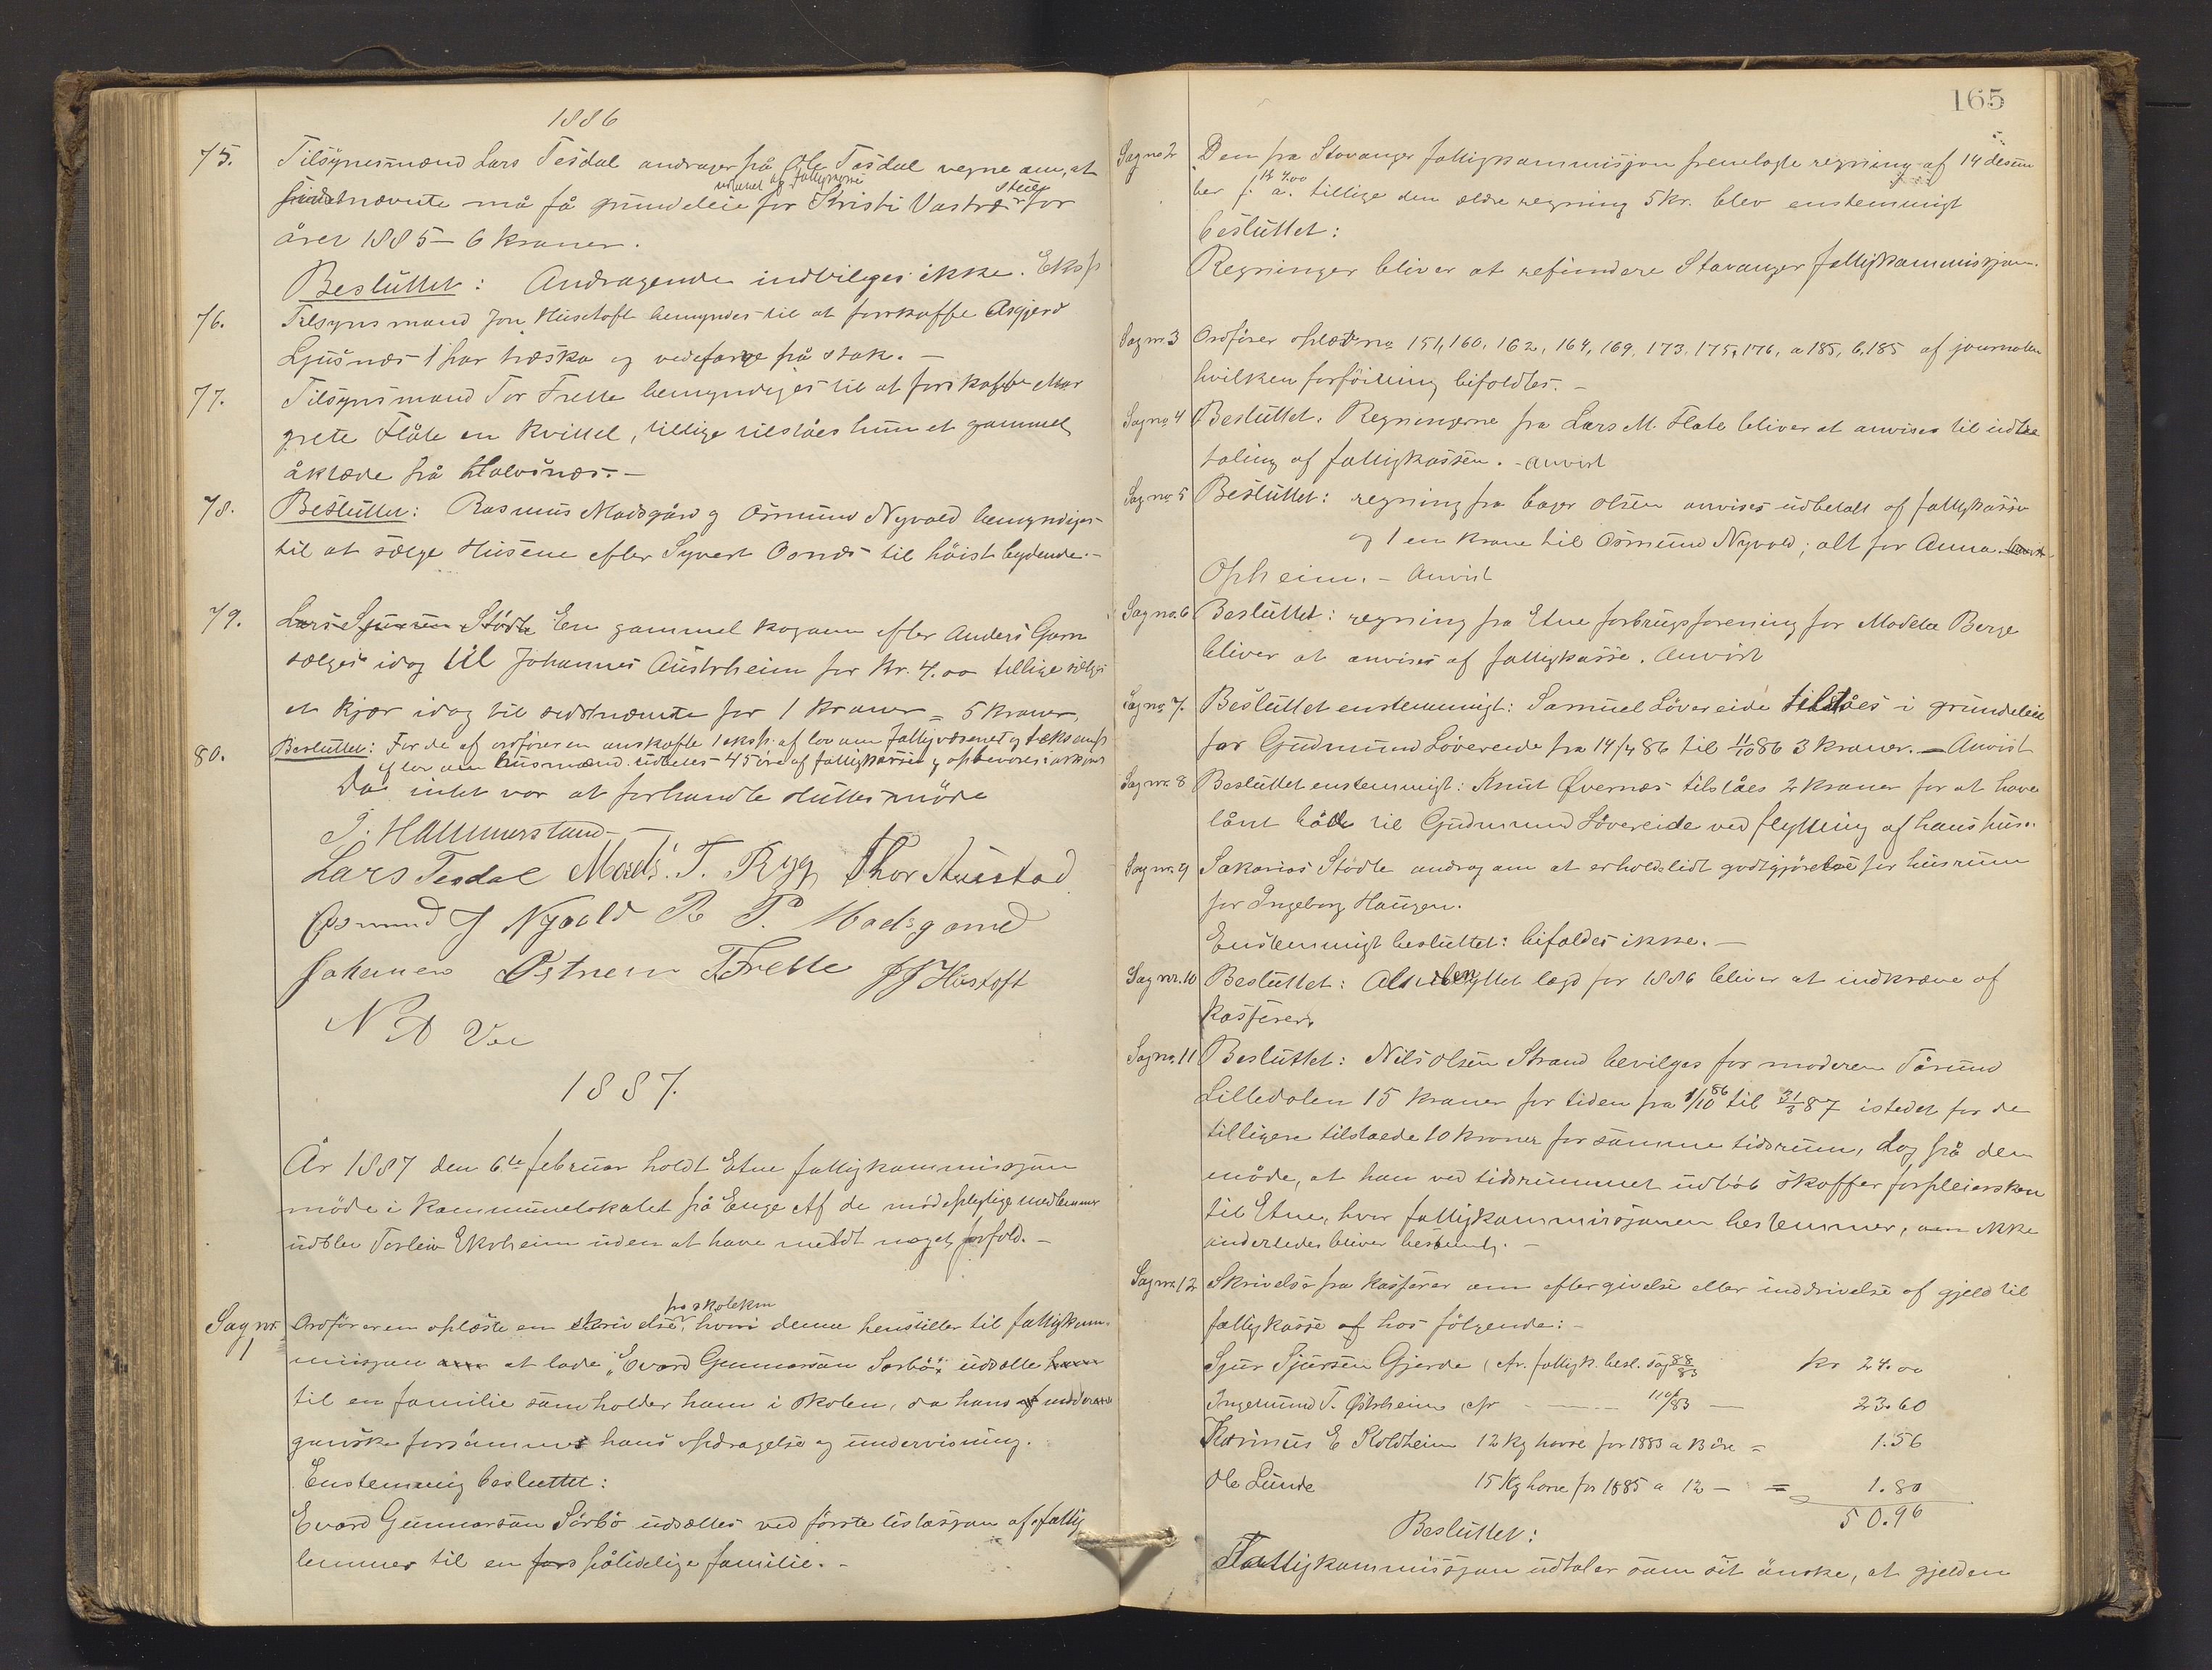 1886
75. Tilsynsmand Lars Tesdal andrager på Ole Tesdal vegne om, at
sidstnævnte må få grundeleie for Kristi Vastræ stue for
udtalet af fattigkasse
året 1885 - 6 kroner.
Besluttet: Andragende indvilges ikke. Eksp
76. Tilsynsmand Jon Hustoft bemyndes til at forskaffe Asgjerd
Ljusnæs 1 par træsko og vedefange på stak. -
77. Tilsynsmand Tor Frette bemyndiges til at forskaffe Mar
grete Flåte en Kvittel, tillige tilståes hun et gammelt
åklæde på Halvsnæs. -
78. Besluttet: Rasmus Madsgård og Osmund Nyvold bemyndiges
til at sælge Husene efter Syvert Osnes til höist bydende. -
79. Lars Sjursen Stödle En gammel kogovn efter Anders Garn
sælges idag til Johannes Austrheim for kr. 4.00 tillige sælges
et kjør idag til sidstnævnte for 1 kroner = 5 kroner.
80. Besluttet: For de af ordføreren anskafte 1 eksp. af lov om fattigvæsenet og 1 eksempl
af lov om husmænd udbetales 45 øre af fattigkassen og opbevares i arkivet
Da intet var at forhandle sluttes møde
I. Hammerstand
Lars Tesdal Mads. T. Rygg Thor Austad
Osmund J Nyvold R P. Madsgaard
Johannes Østrem T Frette J J Hustoft
N A Vee
1887.
År 1887 den 6te februar holdt Etne fattigkommissjon
møde i kommunelokalet på Enge Af de mødepligtige medlemmer
udblev Torleiv Ekrheim uden at have meldt noget forfald. -
Sag nr. 1 Ordføreren oplæste en skrivelse fra skolekom hvori denne henstiller til fattigkom-
missjon at lade "Evard Gunnarsøn Sørbö" udsætte
til en familie som holder ham i skolen, da hans moder
ganske forsømmer hans opdragelse og undervisning.
Enstemmig besluttet:
Evard Gunnarsøn Sörbö udsættes ved første lisitasjon af fattig
lemmer til en pålidelige familie. -
165
Sag no 2 Den fra Stavanger fattigkommisjon fremlagte regning af 14 desem
ber f. a. kr 4.00 tillige den ældre regning 5 kr. blev enstemmigt
besluttet:
Regninger bliver at refundere Stavanger fattigkommissjon.
Sag nr 3 Ordfører oplæste no 151, 160, 162, 164, 169, 173, 175, 176, a 185, b, 185 af journalen
hvilken forföining bifaldtes. -
Sag no 4 Besluttet: Regningerne fra Lars M. Flåte bliver at anvises til udbe
taling af fattigkassen. - anvist
Sag no 5 Besluttet: regning fra bager Olsen anvises udbetalt af fattigkassen
og 1 en krone til Osmund Nyvold; alt for Anna
Opheim. - Anvist
Sag no. 6 Besluttet: regning fra Etne forbrugsforening for Madele Berge
bliver at anvises af fattigkasse. Anvist
Sag no. 7. Besluttet enstemmigt: Samuel Lövereide tilståes i grundeleie
for Gudmund Lövereide fra 14/4 86 til 11/10 86 3 kroner. - Anvist
Sag nr. 8 Besluttet enstemmigt: Knut Øvernæs tilståes 2 kroner for at have
lånt båd til Gudmund Lövereide ved flytning af hans hus.
Sag nr. 9 Sakarias Stödle androg om at erholde lidt godtgjörelse for husrum
for Ingeborg Haugen.
Enstemmigt besluttet: bifaldes ikke. -
Sag nr. 10 Besluttet: Alt ubenyttet lægd for 1886 bliver at indkræve af
kasserer.
Sag no. 11 Besluttet: Nils Olsen Strand bevilges for moderen Tårund
Lilledalen 15 kroner for tiden fra 1/10 86 til 31/3 87 istedet for de
tilligere tilståede 10 kroner for samme tidsrum, dog på den
måde, at han ved tidsrummet udløb skaffer forpleiersken
til Etne, hvor fattigkommissjonen bestemmer, om ikke
anderledes bliver bestemt. -
Sag nr. 12 Skrivelse fra kasserer om eftergivelse eller inddrivelse af gjeld til
fattigkasse af hos følgende: -
Sjur Sjursen Gjerde, cfr. fattigk. besl. sag 88/83 kr 24.00
Ingemund T. Østrheim, cfr - - - 110/83 - 23.60
Rasmus E Skoldheim 12 kg havre for 1883 a 13 øre = 1.56
Ole Lunde 15 kg havre for 1885 a 12 - = 1.80
50.96
Besluttet:
Fattigkommissjon udtaler som sit önske, at gjelden